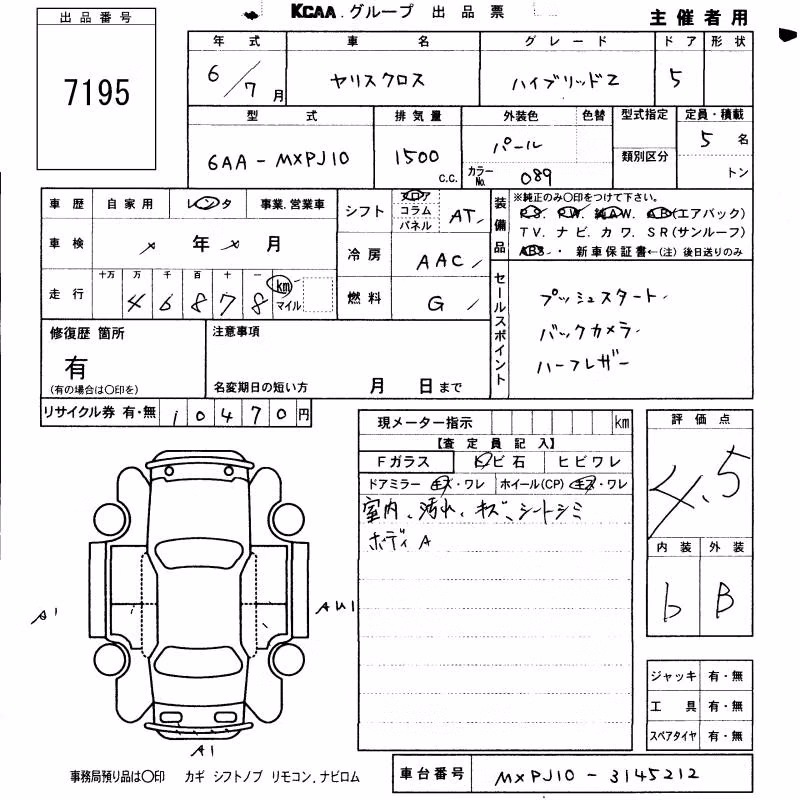 KCAA グループ 出品票
主催者用
出品番号
7195
年式 車名 グレード ドア 形状
6/7月 ヤリスクロス ハイブリッドZ 5
型式 排気量 外装色 色替 型式指定 定員・積載
6AA-MXPJ10 1500 c.c. パール 5名
類別区分
カラーNo. 089 トン
車歴 自家用 レンタ 事業.営業車
シフト フロア コラム パネル AT
装備品
※純正のみ○印をつけて下さい。
P.S. P.W. 純A.W. A.B(エアバック)
T.V. ナビ. カワ. S.R(サンルーフ)
ABS. ・ 新車保証書←(注) 後日送りのみ
車検 年 月
冷房 AAC
走行 十万 万 千 百 十 一
4 6 8 7 8 km マイル
燃料 G
セールスポイント
プッシュスタート
バックカメラ
ハーフレザー
修復歴 箇所
有
(有の場合は○印を)
注意事項
名変期日の短い方 月 日まで
リサイクル券 有・無 10470円
現メーター指示 km
【査定員記入】
Fガラス トビ石 ヒビワレ
ドアミラー キズ・ワレ ホイール(CP) キズ・ワレ
室内、汚れ、キズ、シートシミ
ボディA
評価点
4.5
内装 外装
b B
A1
AU1
A1
ジャッキ 有・無
工具 有・無
スペアタイヤ 有・無
事務局預り品は○印 カギ シフトノブ リモコン.ナビロム
車台番号 MXPJ10-3145212